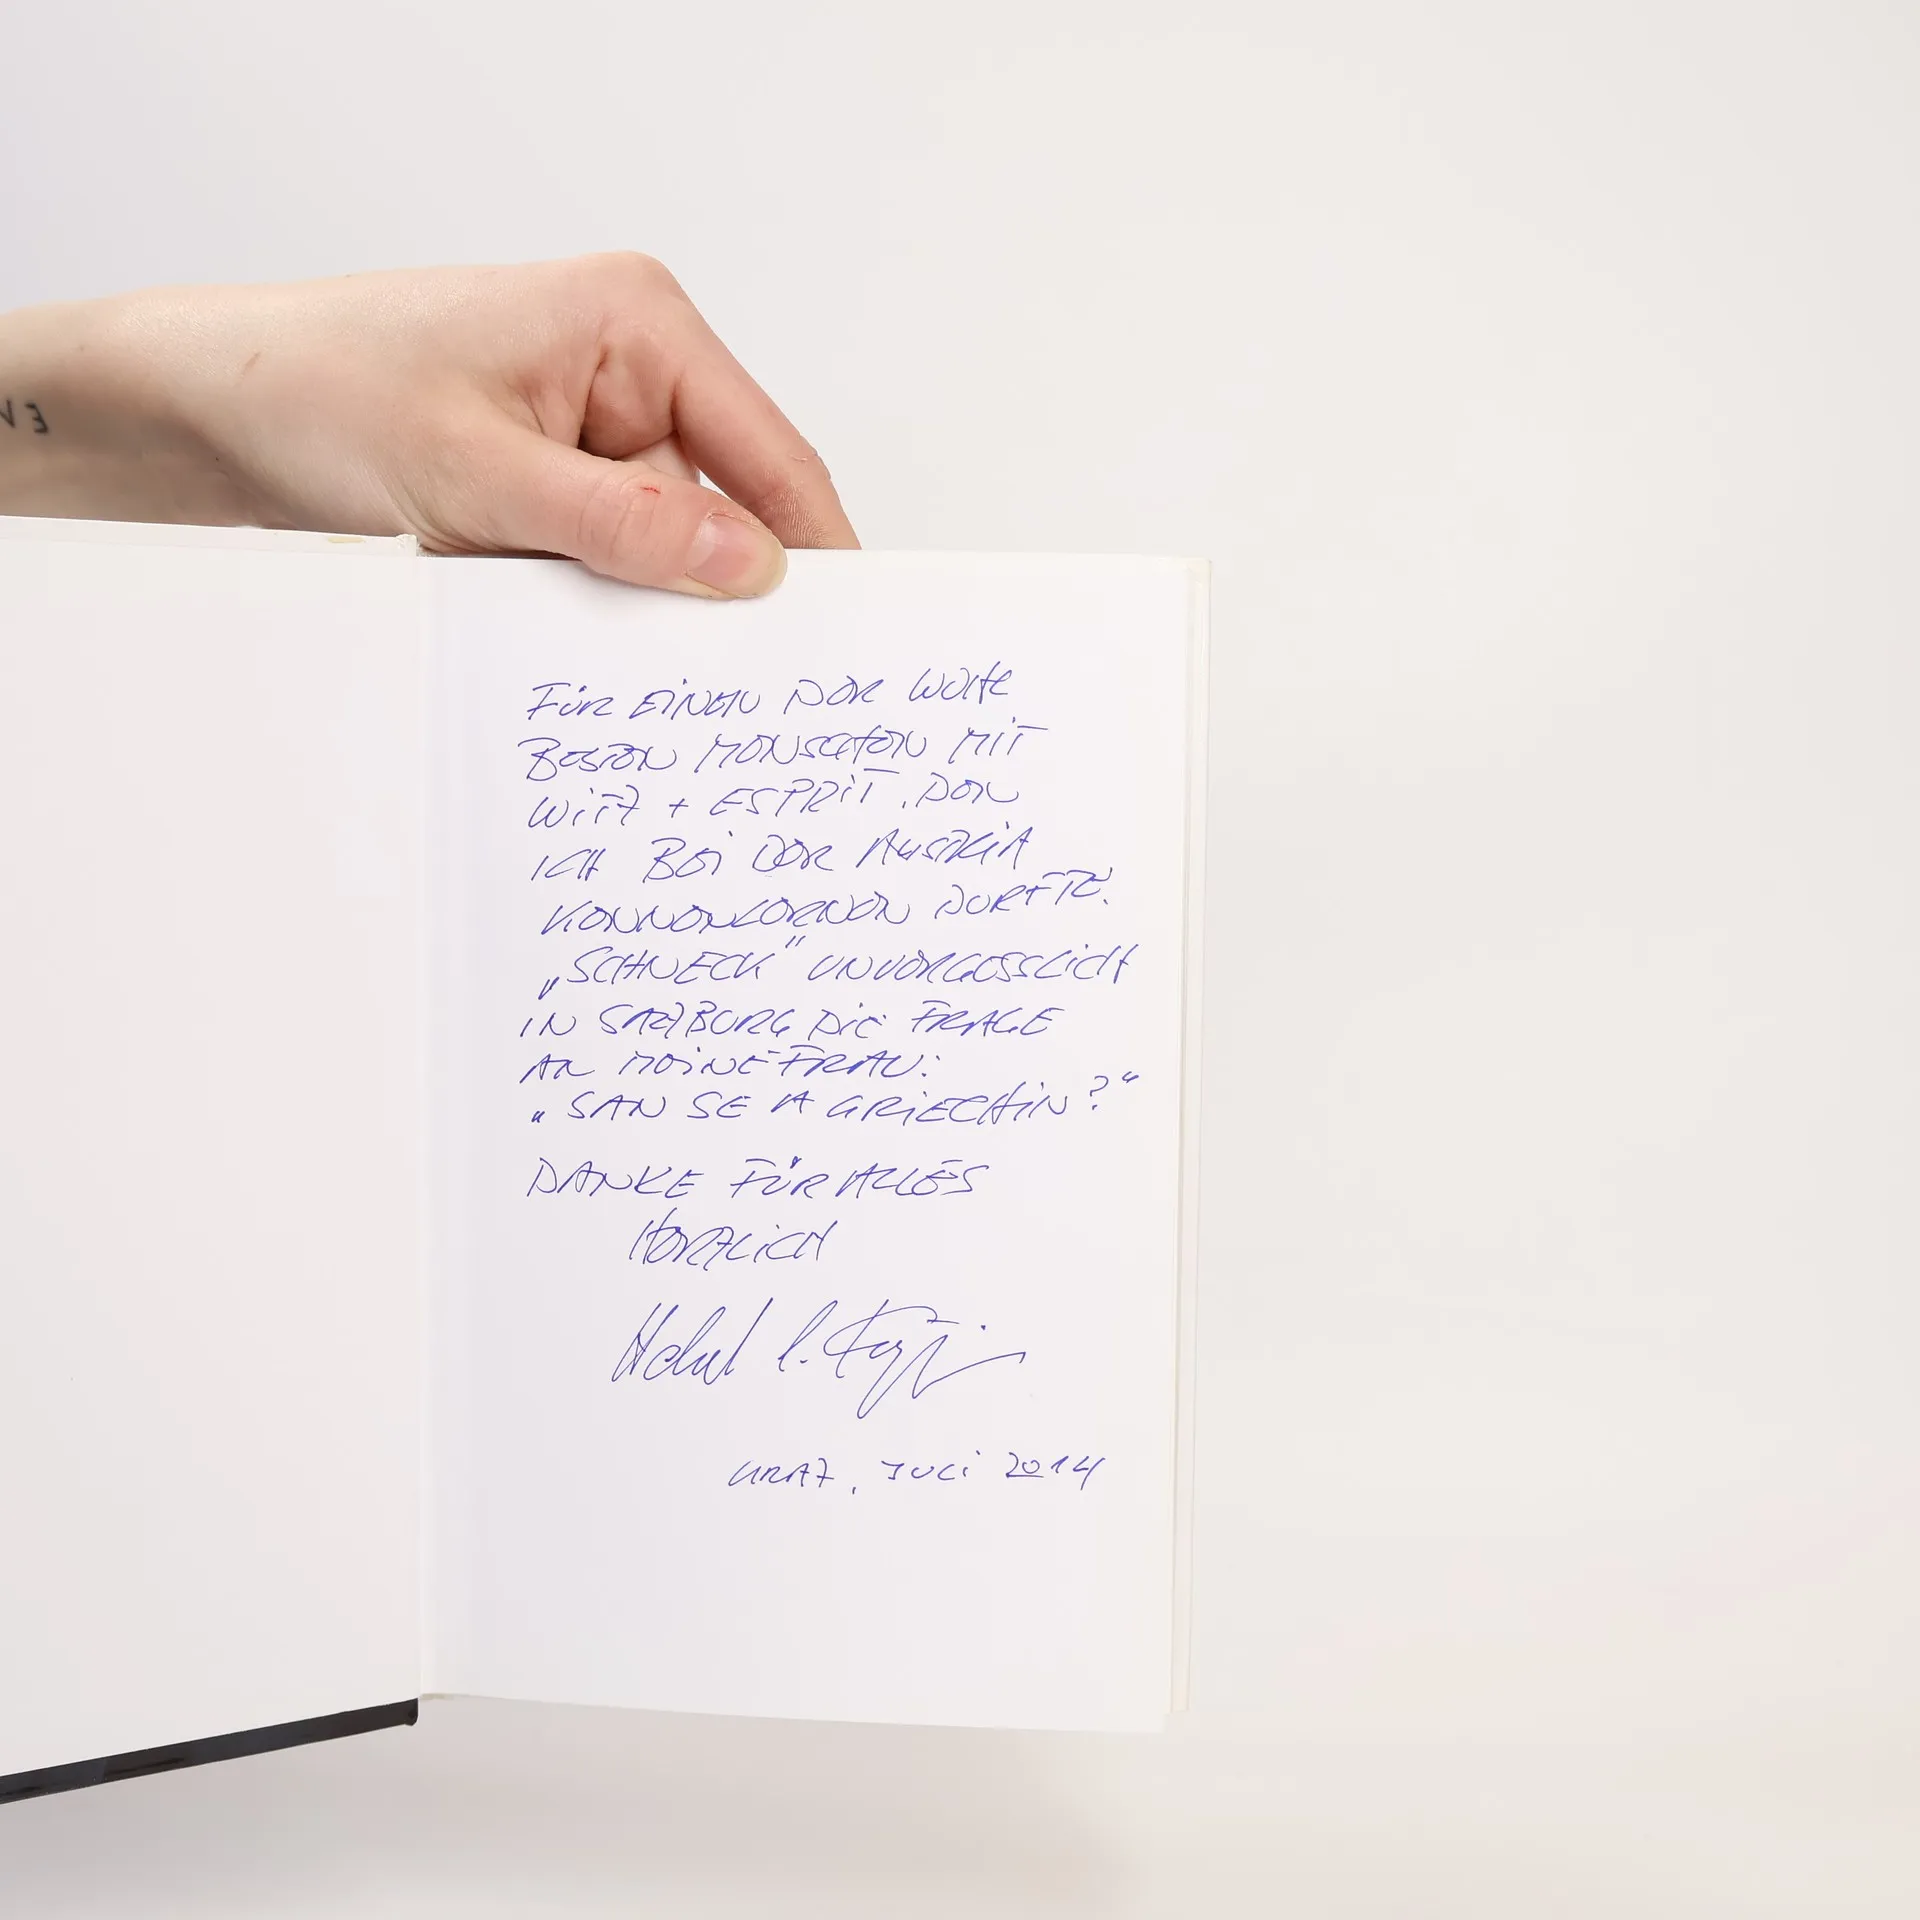 EN
FÜR EINEN DER WEITE
BESTEN MENSCHEN MIT
WITZ + ESPRIT, DEN
ICH BEI DER AUSTRIA
KENNENLERNEN DURFTE.
„SCHNECK" UNVERGESSLICH
IN SALZBURG DIE FRAGE
AN MEINE FRAU:
„SAN SE A GRIECHIN?“
DANKE FÜR ALLES
HERZLICH
GRAZ, JULI 2014